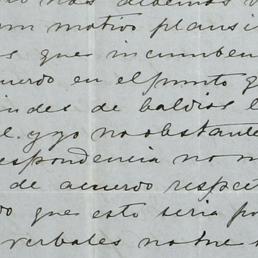 nos
un motivo plausi
s que incumben
uerdo en el punto q
indes de baldios l
l. y yo no obstante
respondencia no m
de acuerdo respet
do que esto seria po
verbales no tue